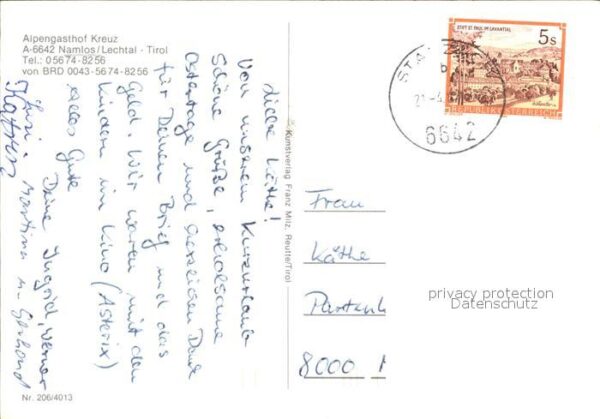 Alpengasthof Kreuz
A-6642 Namlos/Lechtal - Tirol
Tel.: 05674-8256
von BRD 0043-5674-8256
Liebe Käthe!
Von unserem Kurzurlaub
Schöne Grüße, erholsame
Ostertage und herzlichen Dank
für Deinen Brief und das
Geld. Wir waren mit den
Kindern im Kino (Asterix)
Alles Gute
Deine Ingrid, Werner
Susi, Martina u. Gerhard
Nr. 206/4013
Kunstverlag Franz Milz, Reutte/Tirol
STIFT ST. PAUL IM LAVANTTAL
5s
REPUBLIK ÖSTERREICH
6642
Frau
Käthe
Partenk
8000
privacy protection
Datenschutz